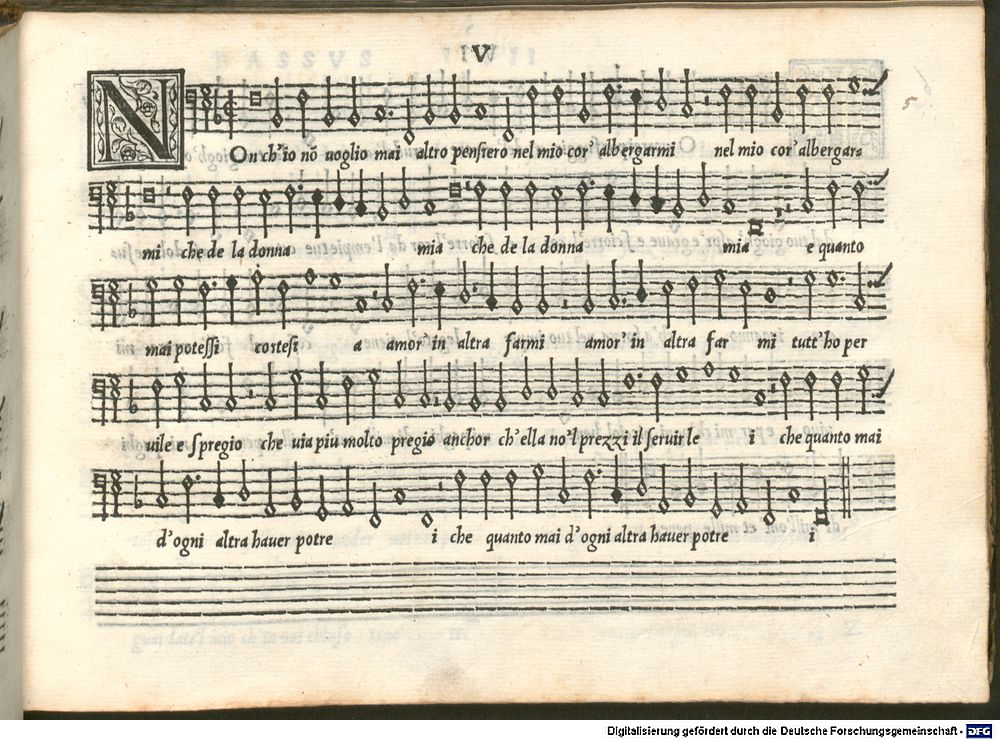 IV
NOn ch'io nõ uoglio mai altro pensiero nel mio cor' albergarmi nel mio cor' albergar=
mi che de la donna mia che de la donna mia e quanto
mai potessi cortesi a amor' in altra farmi amor' in altra far mi tutt' ho per
uile e spregio che uia più molto pregio anchor ch'ella no'l prezzi il seruir le i che quanto mai
d'ogni altra hauer potre i che quanto mai d'ogni altra hauer potre i
Digitalisierung gefördert durch die Deutsche Forschungsgemeinschaft - DFG